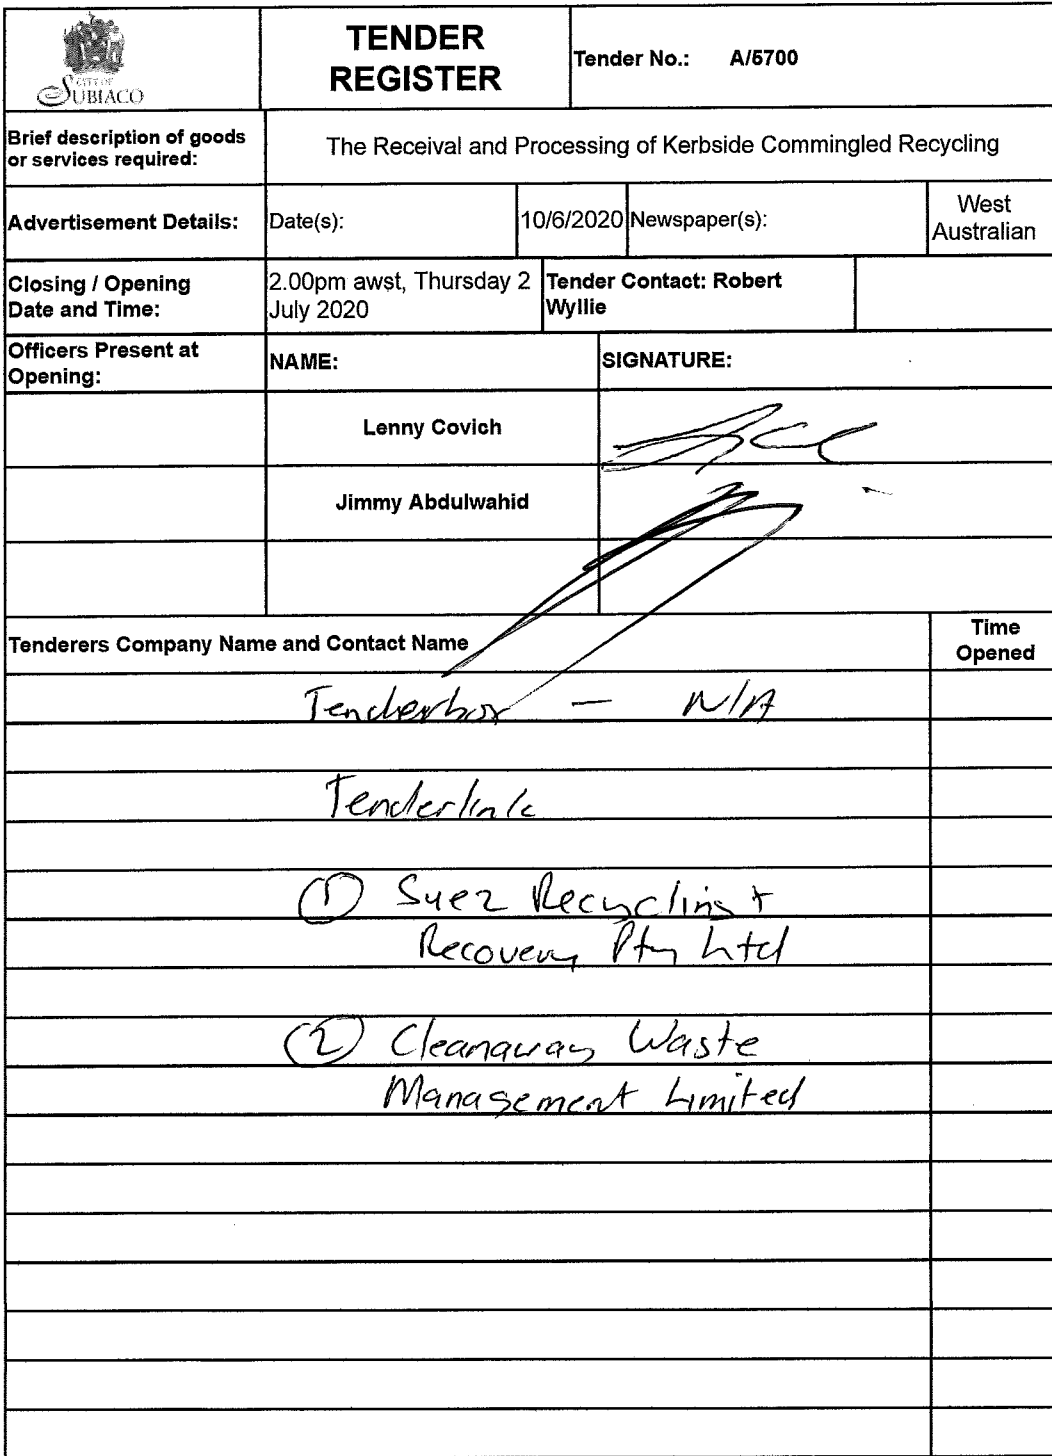 CITY OF
SUBIACO
TENDER
REGISTER
Tender No.: A/5700
Brief description of goods
or services required:
The Receival and Processing of Kerbside Commingled Recycling
Advertisement Details:
Date(s):
10/6/2020
Newspaper(s):
West
Australian
Closing / Opening
Date and Time:
2.00pm awst, Thursday 2
July 2020
Tender Contact: Robert
Wyllie
Officers Present at
Opening:
NAME:
SIGNATURE:
Lenny Covich
Jimmy Abdulwahid
Tenderers Company Name and Contact Name
Time
Opened
Tenderbox — N/A
Tenderlink
① Suez Recycling +
Recovery Pty Ltd
② Cleanaway Waste
Management Limited